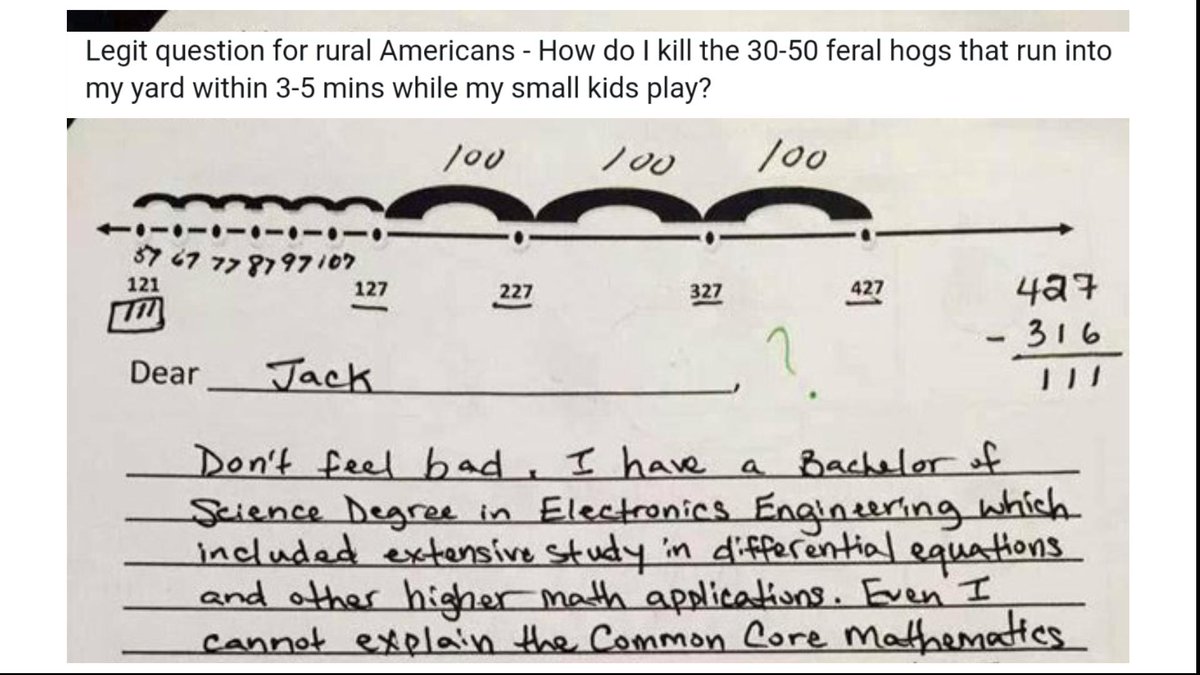 Legit question for rural Americans - How do I kill the 30-50 feral hogs that run into
my yard within 3-5 mins while my small kids play?
100 100 100
57 67 77 87 97 107
121 127 227 327 427
111
427
- 316
111
Dear Jack, ?
Don't feel bad. I have a Bachelor of
Science Degree in Electronics Engineering which
included extensive study in differential equations
and other higher math applications. Even I
cannot explain the Common Core Mathematics